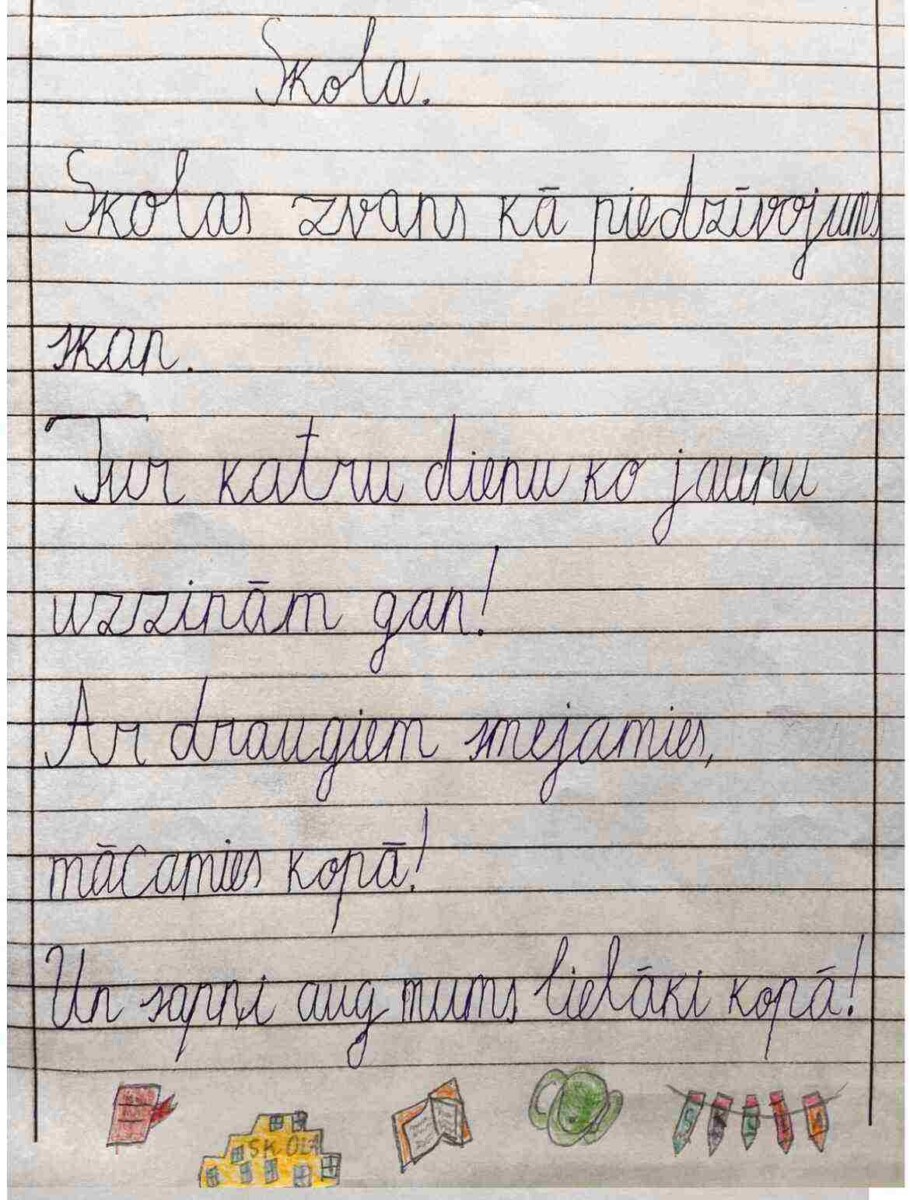 Skola.
Skolas zvans kā piedzīvojums
skan.
Tur katru dienu ko jaunu
uzzinām gan!
Ar draugiem smejamies,
mācamies kopā!
Un sapņi aug mums lielāki kopā!
SKOLA